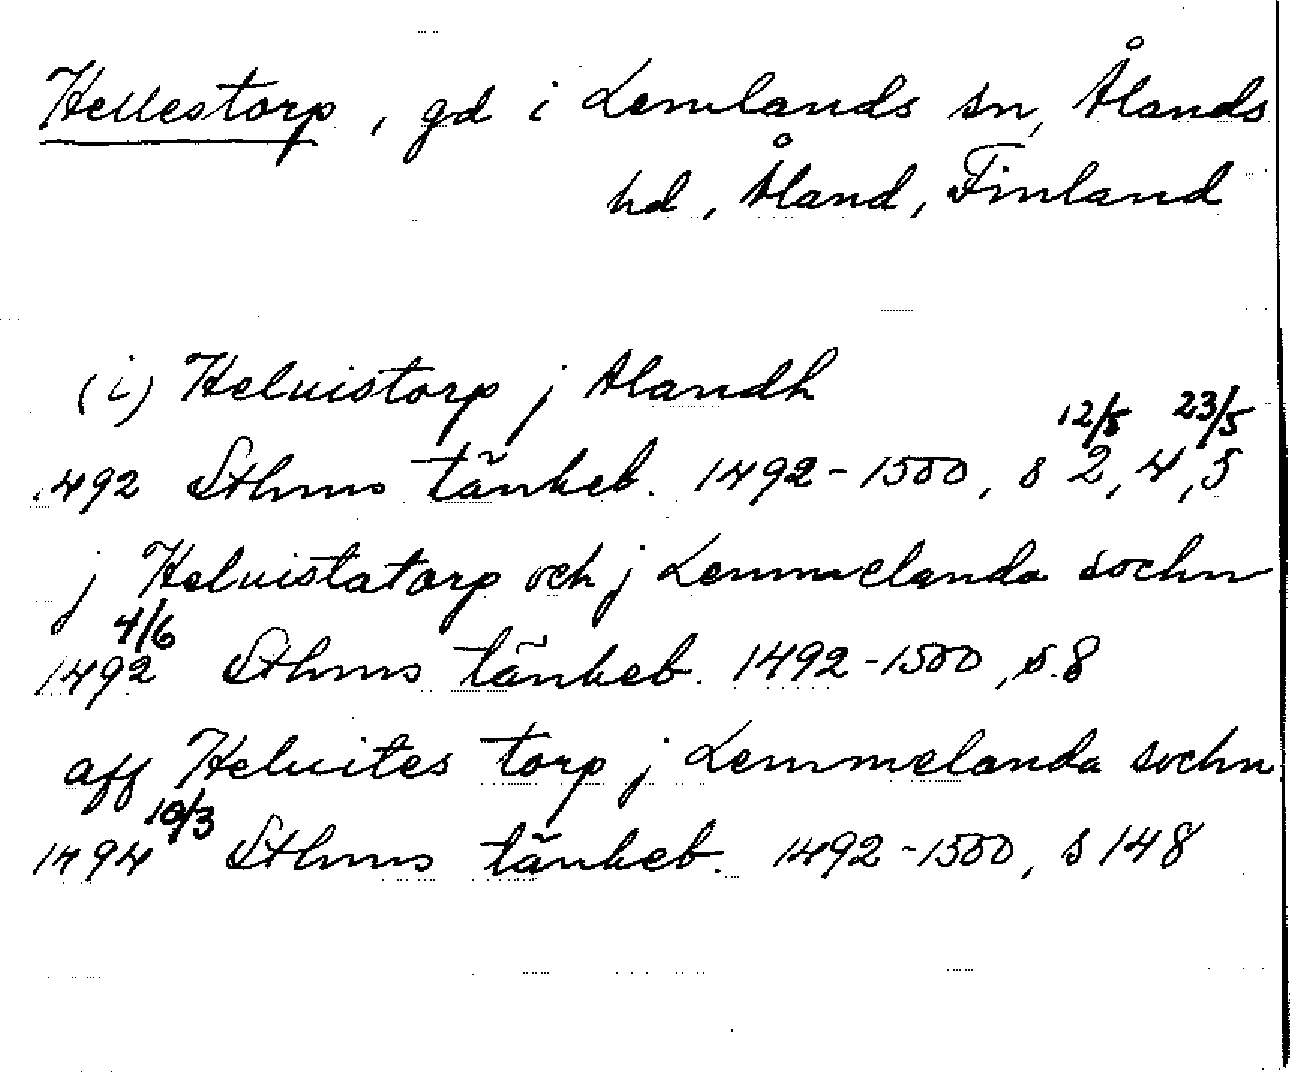 Hellestorp, gd i Lemlands sn, Ålands
hd, Åland, Finland
(i) Heluistorp j Alandh
12/5 23/5
1492 Sthms tänkeb. 1492-1500, s 2, 4, 5
j Heluistatorp och j Lemmelanda sochn
4/6
1492 Sthms tänkeb. 1492-1500, s. 8
aff Heluites torp j Lemmelanda sochn
10/3
1494 Sthms tänkeb. 1492-1500, s 148